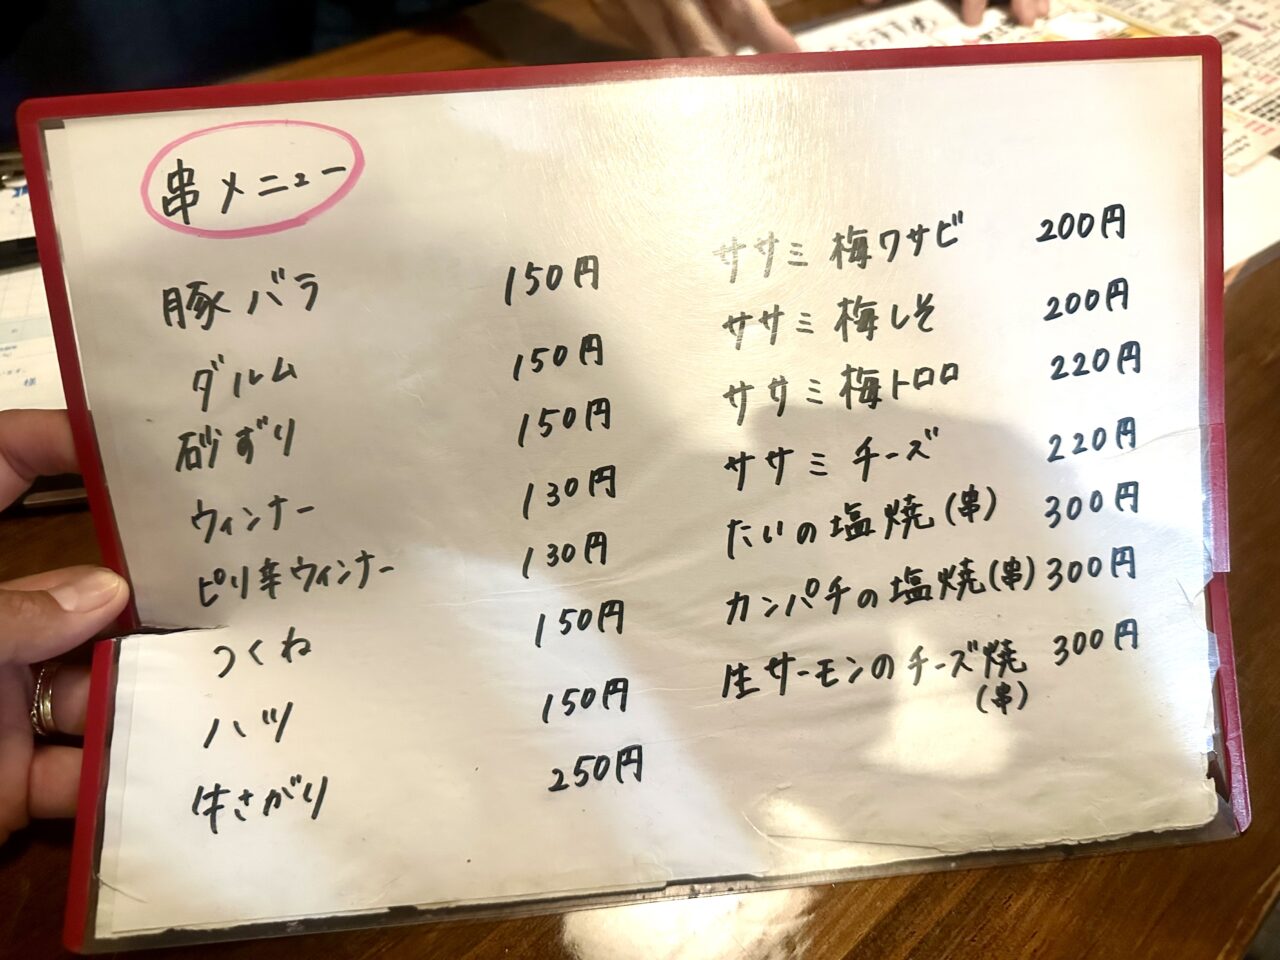 串メニュー
豚バラ 150円
ダルム 150円
砂ずり 150円
ウィンナー 130円
ピリ辛ウィンナー 130円
つくね 150円
ハツ 150円
牛さがり 250円
ササミ 梅ワサビ 200円
ササミ 梅しそ 200円
ササミ 梅トロロ 220円
ササミ チーズ 220円
たいの塩焼(串) 300円
カンパチの塩焼(串) 300円
生サーモンのチーズ焼 300円
(串)